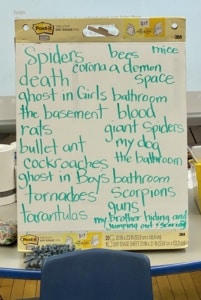 Post-it
Spiders bees mice
death corona a demon
space
ghost in Girls bathroom
the basement blood
rats giant spiders
bullet ant my dog
cockroaches the bathroom
ghost in Boys bathroom
tornadoes scorpions
tarantulas guns
my brother hiding and
jumping out + scaring
Post-it